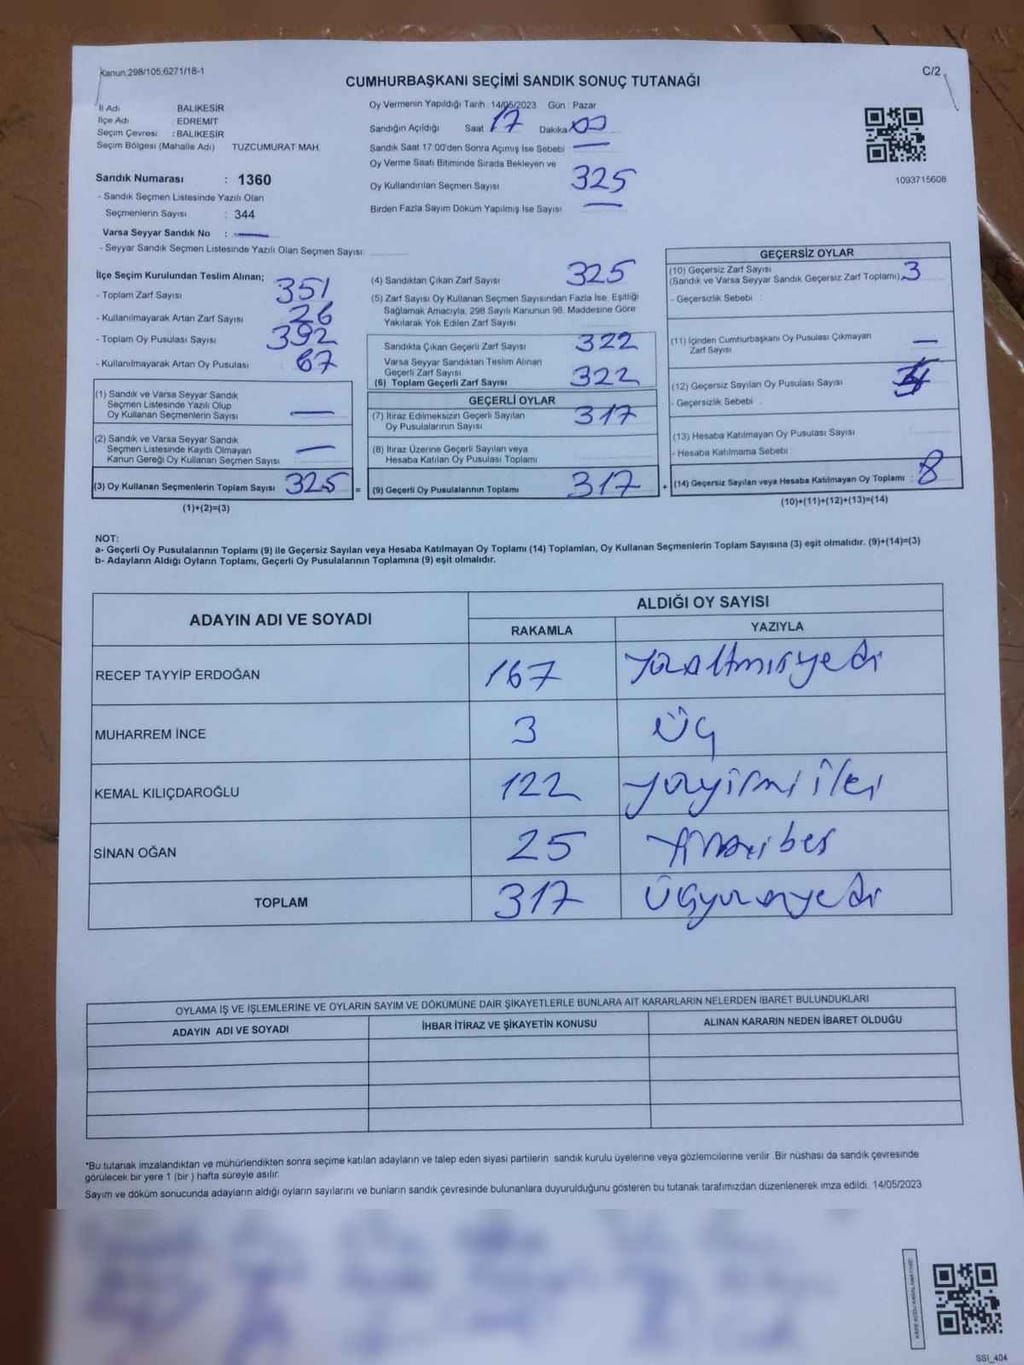 Kanun:298/105,6271/18-1
C/2
CUMHURBAŞKANI SEÇİMİ SANDIK SONUÇ TUTANAĞI
İl Adı BALIKESİR
İlçe Adı : EDREMIT
Seçim Çevresi : BALIKESİR
Seçim Bölgesi (Mahalle Adı) TUZCUMURAT MAH.
Sandık Numarası : 1360
- Sandık Seçmen Listesinde Yazılı Olan
Seçmenlerin Sayısı : 344
Varsa Seyyar Sandık No : —
- Seyyar Sandık Seçmen Listesinde Yazılı Olan Seçmen Sayısı
Oy Vermenin Yapıldığı Tarih : 14/05/2023 Gün : Pazar
Sandığın Açıldığı Saat 17 Dakika 00
Sandık Saat 17:00'den Sonra Açımış İse Sebebi —
Oy Verme Saati Bitiminde Sırada Bekleyen ve
Oy Kullandırılan Seçmen Sayısı 325
Birden Fazla Sayım Döküm Yapılmış İse Sayısı —
1093715608
İlçe Seçim Kurulundan Teslim Alınan;
- Toplam Zarf Sayısı 351
- Kullanılmayarak Artan Zarf Sayısı 26
- Toplam Oy Pusulası Sayısı 392
- Kullanılmayarak Artan Oy Pusulası 67
(1) Sandık ve Varsa Seyyar Sandık
Seçmen Listesinde Yazılı Olup
Oy Kullanan Seçmenlerin Sayısı —
(2) Sandık ve Varsa Seyyar Sandık
Seçmen Listesinde Kayıtlı Olmayan
Kanun Gereği Oy Kullanan Seçmen Sayısı —
(3) Oy Kullanan Seçmenlerin Toplam Sayısı 325 =
(1)+(2)=(3)
(4) Sandıktan Çıkan Zarf Sayısı 325
(5) Zarf Sayısı Oy Kullanan Seçmen Sayısından Fazla İse, Eşitliği
Sağlamak Amacıyla, 298 Sayılı Kanunun 98. Maddesine Göre
Yakılarak Yok Edilen Zarf Sayısı
Sandıkta Çıkan Geçerli Zarf Sayısı 322
Varsa Seyyar Sandıktan Teslim Alınan
Geçerli Zarf Sayısı
(6) Toplam Geçerli Zarf Sayısı 322
GEÇERLİ OYLAR
(7) İtiraz Edilmeksizin Geçerli Sayılan
Oy Pusulalarının Sayısı 317
(8) İtiraz Üzerine Geçerli Sayılan veya
Hesaba Katılan Oy Pusulası Toplamı
(9) Geçerli Oy Pusulalarının Toplamı 317 +
GEÇERSİZ OYLAR
(10) Geçersiz Zarf Sayısı
(Sandık ve Varsa Seyyar Sandık Geçersiz Zarf Toplamı) 3
- Geçersizlik Sebebi :
(11) İçinden Cumhurbaşkanı Oy Pusulası Çıkmayan
Zarf Sayısı —
(12) Geçersiz Sayılan Oy Pusulası Sayısı
- Geçersizlik Sebebi :
(13) Hesaba Katılmayan Oy Pusulası Sayısı
- Hesaba Katılmama Sebebi
(14) Geçersiz Sayılan veya Hesaba Katılmayan Oy Toplamı : 8
(10)+(11)+(12)+(13)=(14)
NOT:
a- Geçerli Oy Pusulalarının Toplamı (9) ile Geçersiz Sayılan veya Hesaba Katılmayan Oy Toplamı (14) Toplamları, Oy Kullanan Seçmenlerin Toplam Sayısına (3) eşit olmalıdır. (9)+(14)=(3)
b- Adayların Aldığı Oyların Toplamı, Geçerli Oy Pusulalarının Toplamına (9) eşit olmalıdır.
ADAYIN ADI VE SOYADI ALDIĞI OY SAYISI
RAKAMLA YAZIYLA
RECEP TAYYİP ERDOĞAN 167 yüzaltmışyedi
MUHARREM İNCE 3 üç
KEMAL KILIÇDAROĞLU 122 yüzyirmi iki
SİNAN OĞAN 25 yirmibeş
TOPLAM 317 üçyüzonyedi
OYLAMA İŞ VE İŞLEMLERİNE VE OYLARIN SAYIM VE DÖKÜMÜNE DAİR ŞİKAYETLERLE BUNLARA AİT KARARLARIN NELERDEN İBARET BULUNDUKLARI
ADAYIN ADI VE SOYADI İHBAR İTİRAZ VE ŞİKAYETİN KONUSU ALINAN KARARIN NEDEN İBARET OLDUĞU
*Bu tutanak imzalandıktan ve mühürlendikten sonra seçime katılan adayların ve talep eden siyasi partilerin sandık kurulu üyelerine veya gözlemcilerine verilir. Bir nüshası da sandık çevresinde
görülecek bir yere 1 (bir) hafta süreyle asılır.
Sayım ve döküm sonucunda adayların aldığı oyların sayılarını ve bunların sandık çevresinde bulunanlara duyurulduğunu gösteren bu tutanak tarafımızdan düzenlenerek imza edildi. 14/05/2023
SSI_404